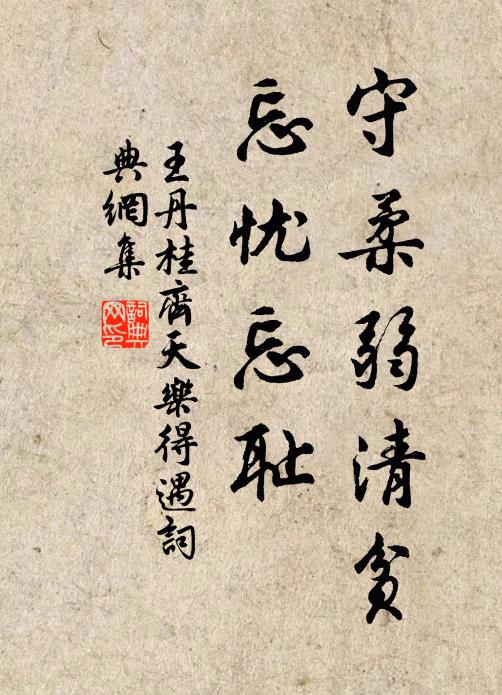 守柔弱清贫
忘忧忘耻
王丹桂齊天樂得遇詞
典網集
詞典
网印